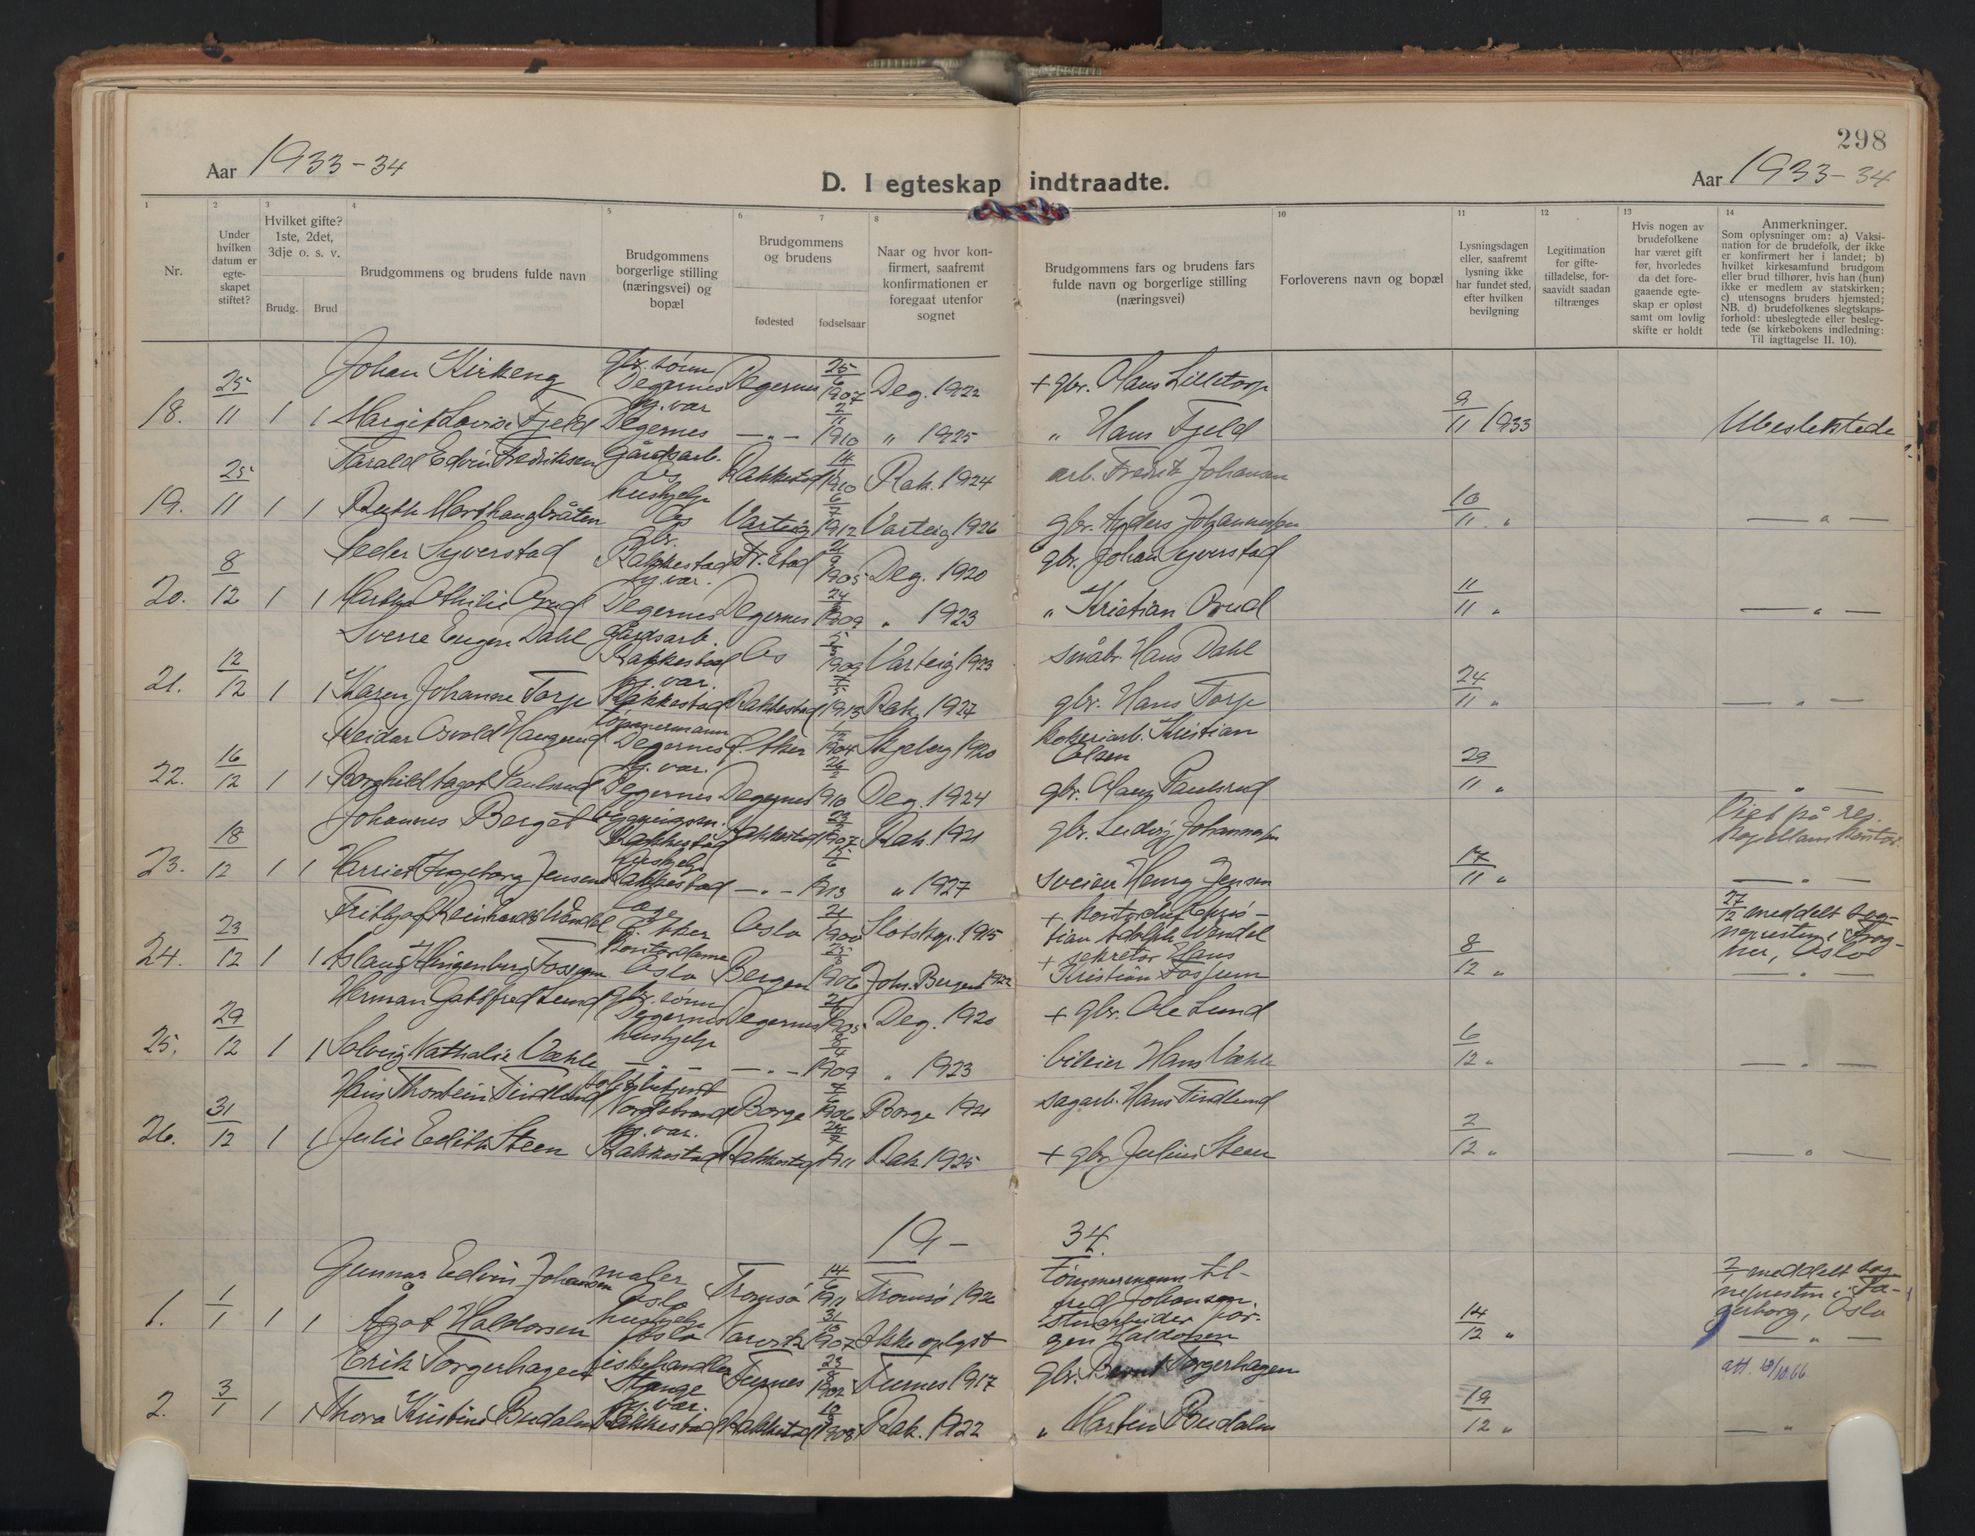 298
Aar 1933-34
D. I egteskap indtraadte.
Aar 1933-34
1 2 3 4 5 6 7 8 10 11 12 13 14
Nr.
Under hvilken datum er egte-skapet stiftet?
Hvilket gifte? 1ste, 2det, 3dje o. s. v.
Brudg. Brud
Brudgommens og brudens fulde navn
Brudgommens borgerlige stilling (næringsvei) og bopæl
Brudgommens og brudens
fødested fødselsaar
Naar og hvor kon-firmert, saafremt konfirmationen er foregaat utenfor sognet
Brudgommens fars og brudens fars fulde navn og borgerlige stilling (næringsvei)
Forloverens navn og bopæl
Lysningsdagen eller, saafremt lysning ikke har fundet sted, efter hvilken bevilgning
Legitimation for gifte-tilladelse, for-saavidt saadan tiltrænges
Hvis nogen av brudefolkene har været gift før, hvorledes da det fore-gaaende egte-skap er opløst samt om lovlig skifte er holdt
Anmerkninger.
Som oplysninger om: a) Vaksi-nation for de brudefolk, der ikke er konfirmert her i landet; b) hvilket kirkesamfund brudgom eller brud tilhører, hvis han (hun) ikke er medlem av statskirken; c) utensogns bruders hjemsted; NB. d) brudefolkenes slegtskaps-forhold: ubeslegtede eller besleg-tede (se kirkebokens indledning: Til iagttagelse II. 10).
Johan Kirkeng gbr. sønn Degernes Degernes 25/6 1907 Deg. 1922 + gbr. Hans Lilletorp
18. 25/11 1 1 Margit Lovise Fjeld hj. var Degernes —„— 2/11 1910 „ 1925 „ Hans Fjeld 9/11 1933 Ubeslektede
Harald Edvin Fredriksen Gårdsarb. Os Rakkestad 14/1 1910 Rak. 1924 arb. Fredrik Johansen
19. 25/11 1 1 Ruth Marthaugbråten hushjelp Os Varteig 6/7 1912 Varteig 1926 gbr. Anders Johannessen 10/11 „ — „ —
Peder Syverstad gbr. Rakkestad 1905 Deg. 1920 gbr. Johan Syverstad
20. 8/12 1 1 Martha Othilie Orud hj. var. Degernes Degernes 1909 „ 1923 „ Kristian Orud 11/11 „ — „ —
Sverre Eugen Dahl Gårdsarb. Rakkestad Os 1909 Varteig 1923 småbr. Hans Dahl
21. 12/12 1 1 Karen Johanne Torp hj. var. Rakkestad Rakkestad 1913 Rak. 1927 gbr. Hans Torp 24/11 „ — „ —
Reidar Osvald Haugerud tømmermann Degernes Ø. Aker 1904 Skjeberg 1920 kokeriarb. Kristian Olsen
22. 16/12 1 1 Borghild Dagot Paulsrud hj. var. Degernes Degernes 26/2 1910 Deg. 1924 gbr. Hans Paulsrud 29/11 „ „ —
Johannes Berget bygningssn. Rakkestad Rakkestad 1907 Rak. 1921 gbr. Ludvig Johannessen Viet på res. kapellans kontor.
23. 18/12 1 1 Harriet Ingeborg Jensen hushjelp Rakkestad —„— 1913 „ 1927 sveiser Henry Jensen 17/11 „ — „ —
Fridtjof Reinhardt Wandel Ø. Aker Oslo 1900 Slotskap. 1915 + kontorchef Chris-tian Adolph Wandel 27/12 meddelt sog-nepresten i Frog-ner, Oslo
24. 23/12 1 1 Aslaug Klingenberg Fossum kontordame Oslo Bergen 1906 Joh. Bergen 1922 + sekretær Hans Kristian Fossum 8/12 „ — „ —
Herman Gotfred Lund gbr. sønn Degernes Degernes 1905 Deg. 1920 + gbr. Ole Lund
25. 29/12 1 1 Solveig Nathalie Væhle hushjelp —„— —„— 1909 „ 1923 bileier Hans Væhle 6/12 „ — „ —
Hans Thorstein Tindlund politibetjent Nordstrand Borge 1906 Borge 1921 sagarb. Hans Tindlund
26. 31/12 1 1 Julie Edith Steen hj. var. Rakkestad Rakkestad 1911 Rak. 1925 + gbr. Julius Steen 2/12 „ — „ —
19— 34.
Gunnar Edvin Johansen maler Oslo Tromsø 14/6 1911 Tromsø 1926 tømmermann Hil-fred Johansen. 2/1 meddelt sog-nepresten i Fa-gerborg, Oslo
1. 1/1 1 1 Agot Haldorsen hushjelp Oslo Narvik 31/10 1907 Ikke oplyst stuarbeider Jør-gen Haldorsen 14/12 „ — „ —
Erik Torgerhagen fiskehandler Stange Furnes 23/8 1902 Furnes 1917 gbr. Bernt Torgerhagen att. 13/10.66
2. 3/1 1 1 Thora Kristine Budalen hj. var. Rakkestad Rakkestad 1903 Rak. 1922 „ Martin Budalen 19/12 „ — „ —